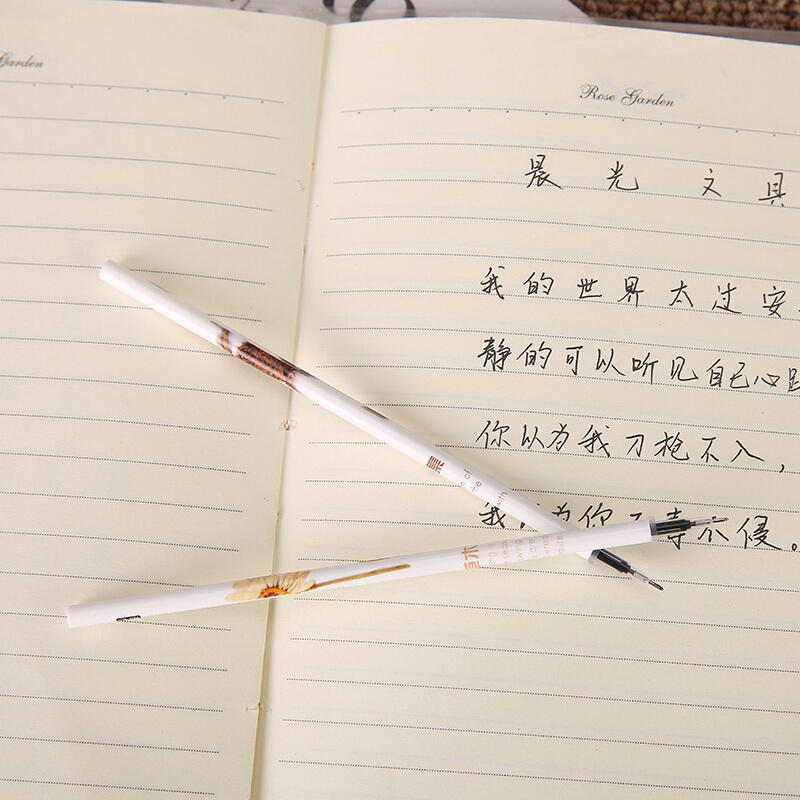 Garden
Rose Garden
晨光 文具
我的世界太过安
静的可以听见自己心
你以为我刀枪不入,
我 为你 不侵。